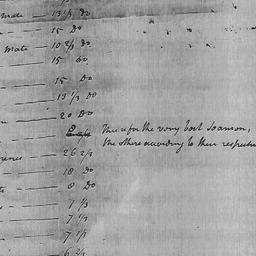 mate — 13 1/3 Do
15 Do
mate — 10 2/3 Do
15 Do
15 Do
13 1/3 Do
20 Do
This is for the very best Seamen,
the others according to their respective
26 2/3
18 Do
8 Do
7 1/3
7 1/3
7 1/3
6 2/3